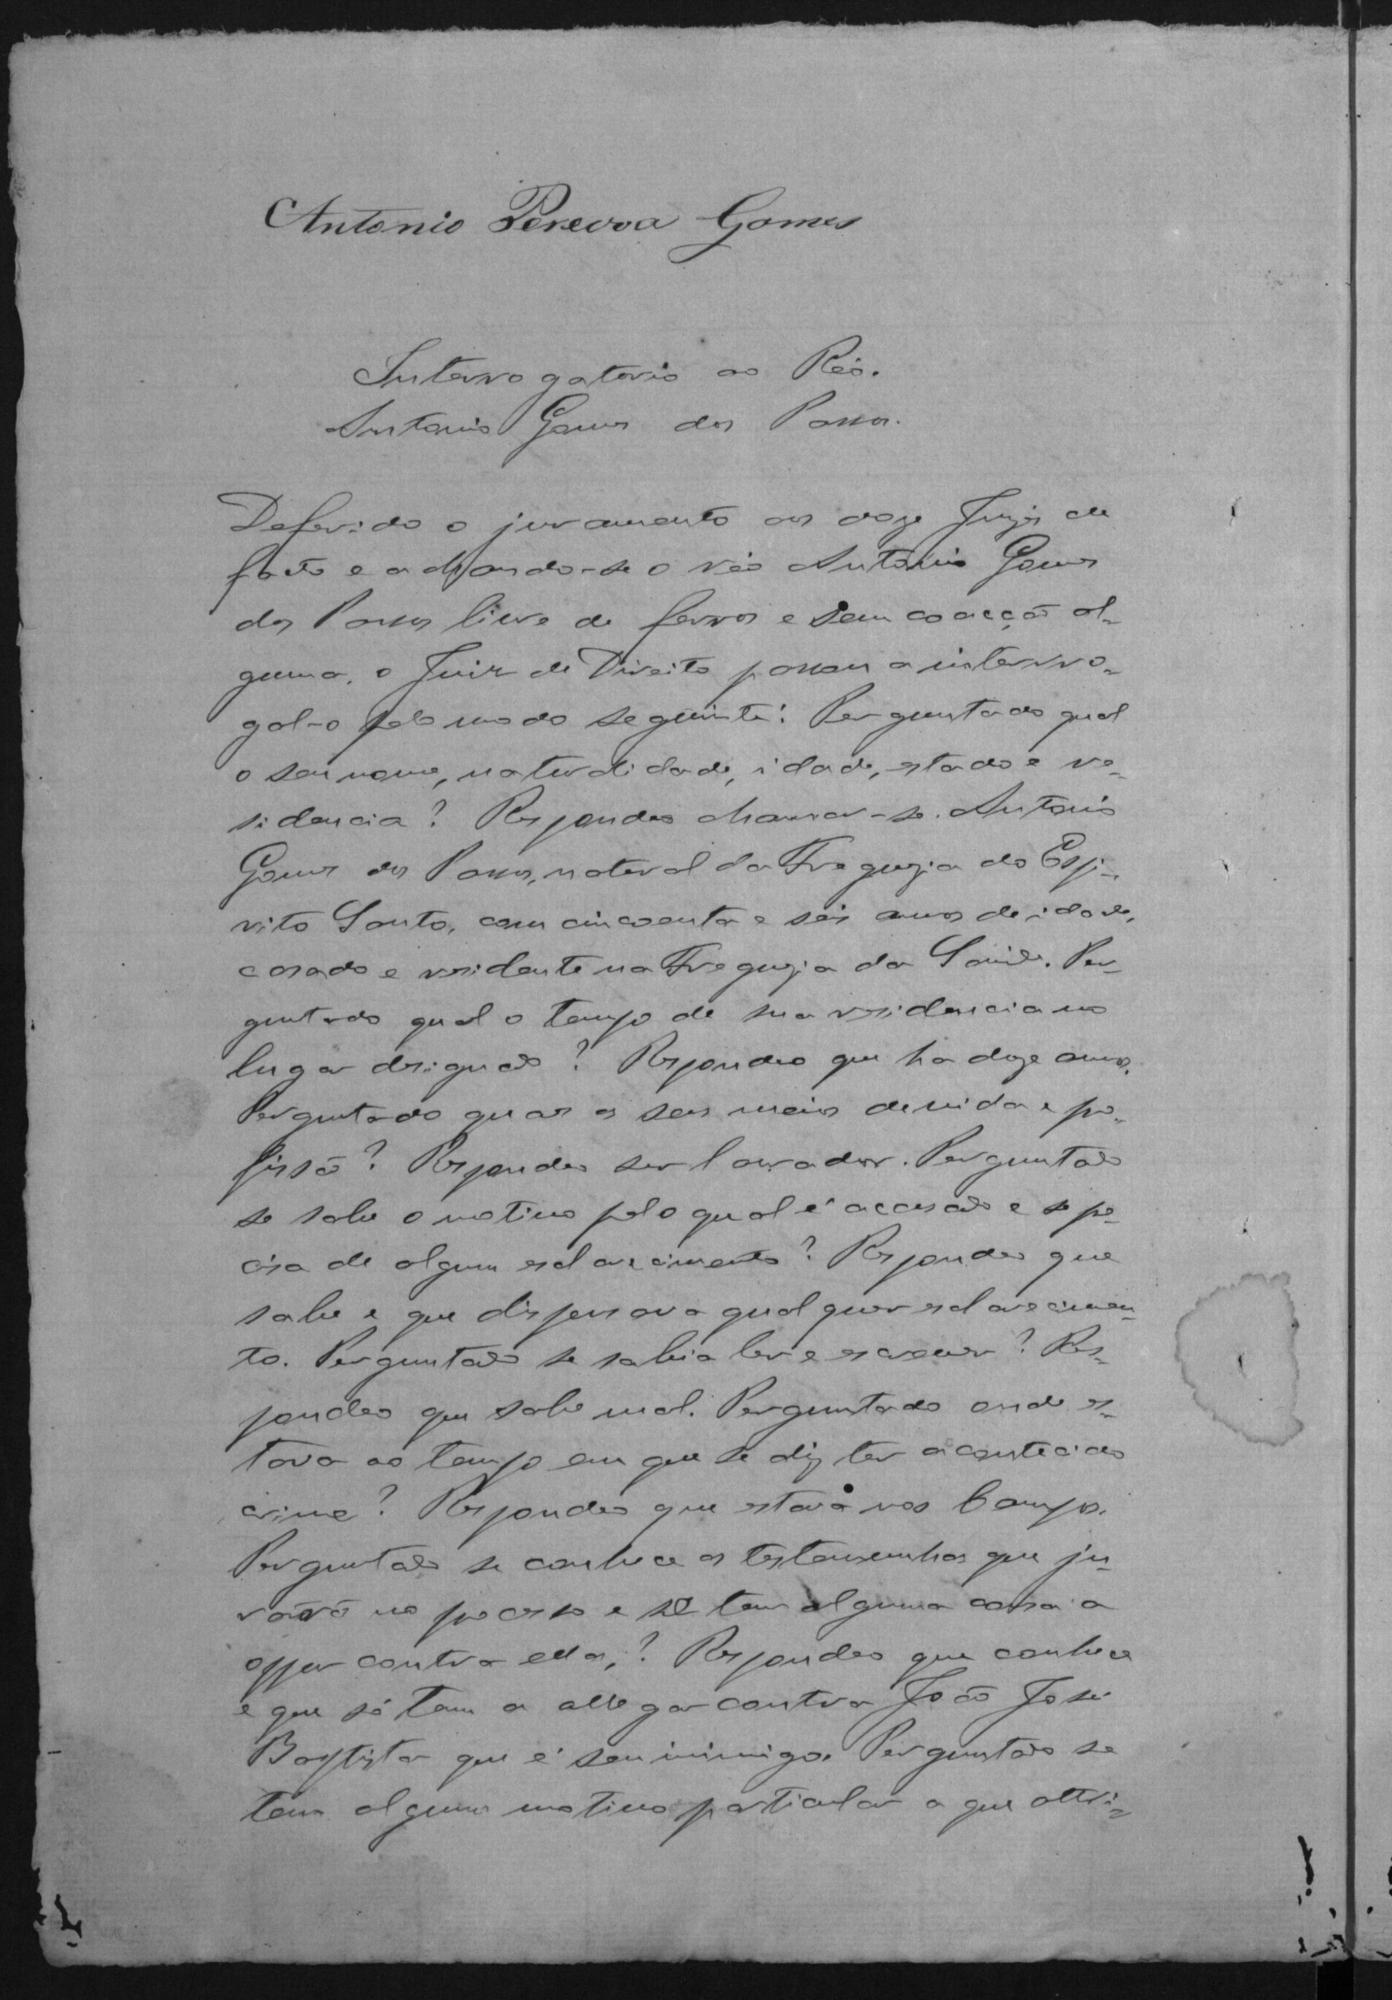 Antonio Pereira Gomes
Interrogatorio ao Réo.
Antonio Gomes dos Passos.
Deferido o juramento aos doze Juizes de
facto e achando-se o réo Antonio Gomes
dos Passos livre de ferros e sem coacção al-
guma, o Juiz de Direito passou a interro-
gal-o pelo modo seguinte: Perguntado qual
o seu nome, naturalidade, idade, estado e re-
sidencia? Respondeo chamar-se Antonio
Gomes dos Passos, natural da Freguezia do Espi-
rito Santo, com cincoenta e seis annos de idade,
casado e residente na Freguezia da Saúde. Per-
guntado qual o tempo de sua residencia no
lugar designado? Respondeo que ha doze annos.
Perguntado quaes os seus meios de vida e pro-
fissão? Respondeo ser lavrador. Perguntado
se sabe o motivo pelo qual é accusado e se pre-
cisa de algum esclarecimento? Respondeo que
sabe e que dispensava qualquer esclarecimen-
to. Perguntado se sabia ler e escrever? Res-
pondeo que sabe mal. Perguntado onde es-
tava ao tempo em que se diz ter acontecido o
crime? Respondeo que estava nos Campos.
Perguntado se conhece as testemunhas que ju-
rarão no processo e se tem alguma cousa a
oppor contra ellas,? Respondeo que conhece
e que só tem a allegar contra João José
Baptista que é seu inimigo. Perguntado se
tem algum motivo particular a que attri-